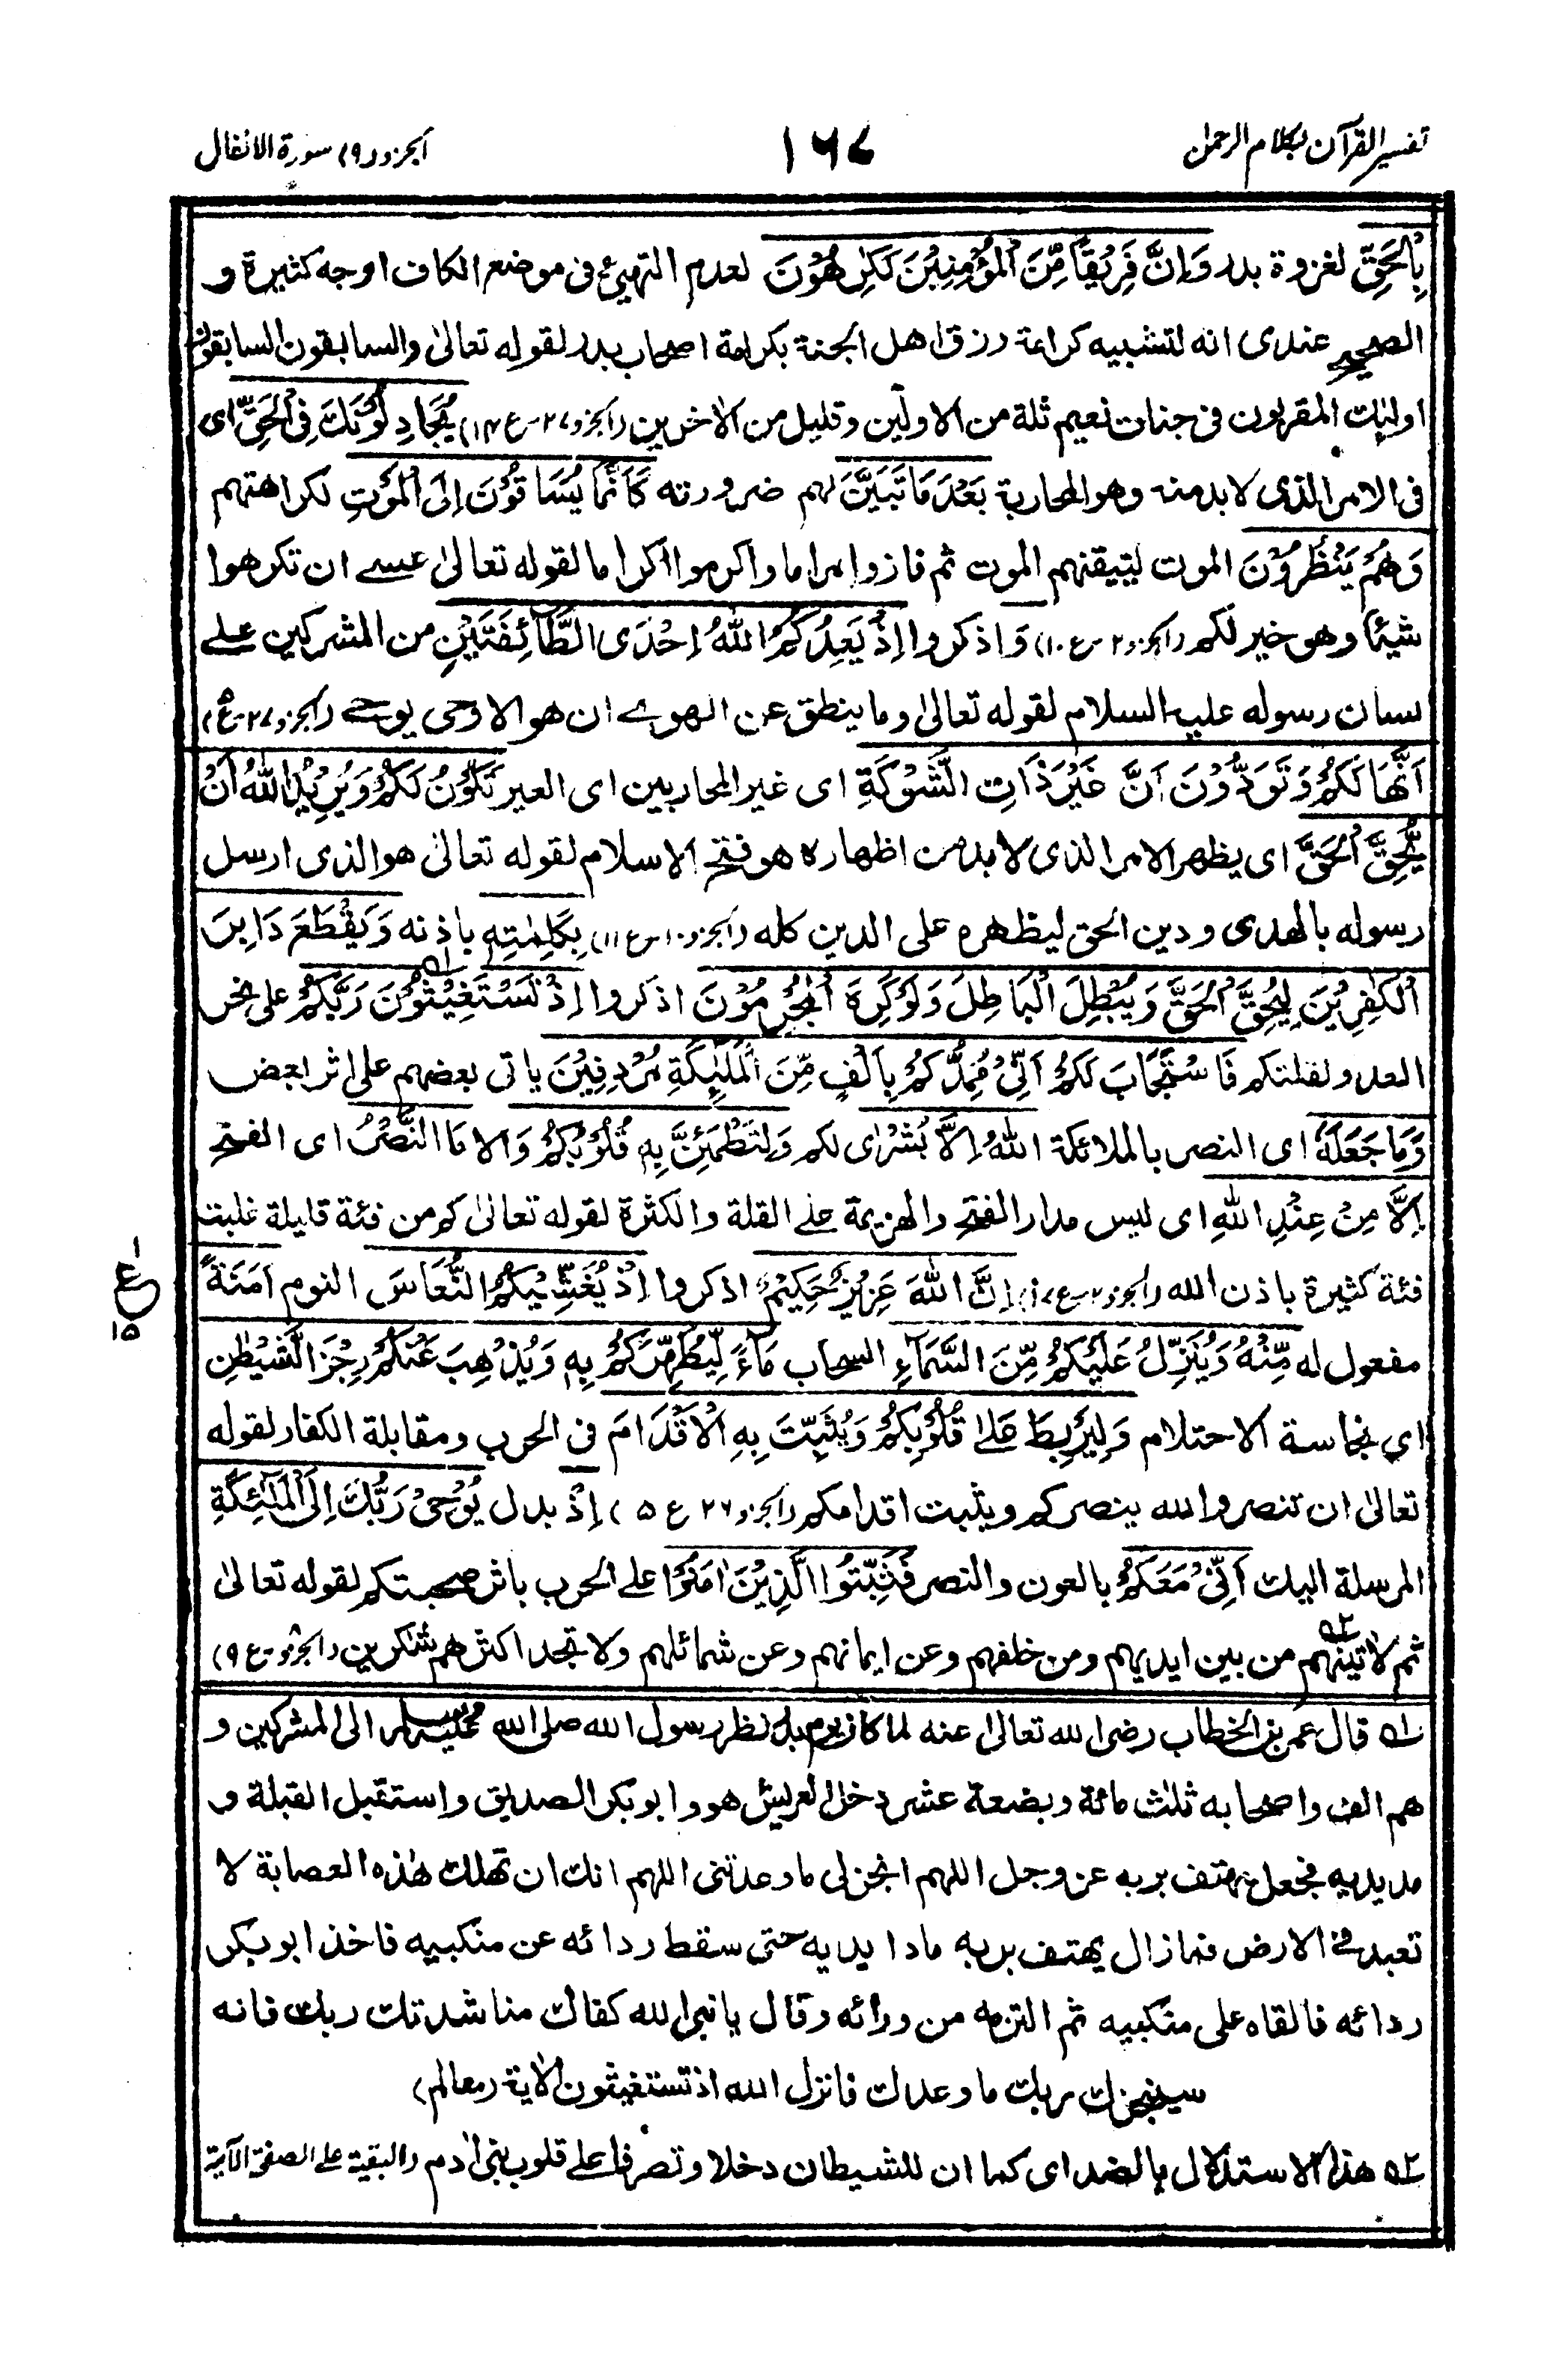 تفسير القرآن بكلام الرحمان
١٦٧
الجزو (٩) سورة الانفال
بِالْحَقِّ لغزوة بدر وَاِنَّ فَرِيْقًا مِّنَ الْمُؤْمِنِيْنَ لَكٰرِهُوْنَ لعدم التهيئ فى موضع الكاف اوجه كثيرة و
الصحيح عندى انه لتشبيه كرامة رزق اهل الجنة بكرامة اصحاب بدر لقوله تعالىٰ والسابقون السابقون
اولٰئك المقربون فى جنات نعيم ثلة من الاولين وقليل من الاٰخرين (الجزو ٢٧-ع ١٤) يُجَادِلُوْنَكَ فِى الْحَقِّ اى
فى الامر الذى لابد منه وهو المحاربة بَعْدَ مَا تَبَيَّنَ لهم ضرورته كَاَنَّمَا يُسَاقُوْنَ اِلَى الْمَوْتِ لكراهتهم
وَهُمْ يَنْظُرُوْنَ الموت لتيقنهم الموت ثم فازوا مراما واكرموا اكراما لقوله تعالىٰ عسے ان تكرهوا
شيئًا وهو خير لكم (الجزو ٢-ع ١٠) وَ اذكروا اِذْ يَعِدُكُمُ اللّٰهُ اِحْدَى الطَّآئِفَتَيْنِ من المشركين علے
لسان رسوله عليه السلام لقوله تعالىٰ وما ينطق عن الهوے ان هو الا وحى يوحے (الجزو ٢٧-ع ٥)
اَنَّهَا لَكُمْ وَتَوَدُّوْنَ اَنَّ غَيْرَ ذَاتِ الشَّوْكَةِ اى غير المحاربين اى العير تَكُوْنُ لَكُمْ وَيُرِيْدُ اللّٰهُ اَنْ
يُّحِقَّ الْحَقَّ اى يظهر الامر الذى لابد من اظهاره هو فتح الاسلام لقوله تعالىٰ هو الذى ارسل
رسوله بالهدى ودين الحق ليظهره على الدين كله (الجزو ١٠-ع ١١) بِكَلِمٰتِهٖ باذنه وَيَقْطَعَ دَابِرَ
الْكٰفِرِيْنَ لِيُحِقَّ الْحَقَّ وَيُبْطِلَ الْبَاطِلَ وَلَوْ كَرِهَ الْمُجْرِمُوْنَ اذكروا اِذْ تَسْتَغِيْثُوْنَ رَبَّكُمْ ‏ـ١ه على نحر
العدو لقلتكم فَاسْتَجَابَ لَكُمْ اَنِّىْ مُمِدُّكُمْ بِاَلْفٍ مِّنَ الْمَلٰٓئِكَةِ مُرْدِفِيْنَ ياتى بعضهم على اثر بعض
وَمَا جَعَلَهُ اى النصر بالملائكة اللّٰهُ اِلَّا بُشْرٰى لكم وَلِتَطْمَئِنَّ بِهٖ قُلُوْبُكُمْ وَالا مَا النَّصْرُ اى الفتح
اِلَّا مِنْ عِنْدِ اللّٰهِ اى ليس مدار الفتح والهزيمة علے القلة والكثرة لقوله تعالىٰ كم من فئة قليلة غلبت
فئة كثيرة باذن الله (الجزو ٢-ع ١٧) اِنَّ اللّٰهَ عَزِيْزٌ حَكِيْمٌ اذكروا اِذْ يُغَشِّيْكُمُ النُّعَاسَ النوم اَمَنَةً
ع ١٥
مفعول له مِّنْهُ وَيُنَزِّلُ عَلَيْكُمْ مِّنَ السَّمَآءِ السحاب مَآءً لِّيُطَهِّرَكُمْ بِهٖ وَيُذْهِبَ عَنْكُمْ رِجْزَ الشَّيْطٰنِ
اى نجاسة الاحتلام وَلِيَرْبِطَ عَلٰى قُلُوْبِكُمْ وَيُثَبِّتَ بِهِ الْاَقْدَامَ فى الحرب ومقابلة الكفار لقوله
تعالىٰ ان تنصروا الله ينصركم ويثبت اقدامكم (الجزو ٢٦ ع ٥) اِذْ بدل يُوْحِىْ رَبُّكَ اِلَى الْمَلٰٓئِكَةِ
المرسلة اليك اَنِّىْ مَعَكُمْ بالعون والنصر فَثَبِّتُوا الَّذِيْنَ اٰمَنُوْا علے الحرب باثر صحبتكم لقوله تعالىٰ
ثم لاٰتينهم ـ٢ه من بين ايديهم ومن خلفهم وعن ايمانهم وعن شمائلهم ولا تجد اكثرهم شٰكرين (الجزو ٨-ع ٩)
ـ١ه قال عمر بن الخطاب رضى الله تعالىٰ عنه لما كان يوم بدر نظر رسول الله صلى الله عليه وسلم الى المشركين و
هم الف واصحابه ثلٰث مائة وبضعة عشر دخل العريش هو وابو بكر الصديق واستقبل القبلة و
مد يديه فجعل يهتف بربه عز وجل اللهم انجز لى ما وعدتنى اللهم انك ان تهلك هٰذه العصابة لا
تعبد فے الارض فما زال يهتف بربه مادا يديه حتى سقط ردائه عن منكبيه فاخذ ابو بكر
ردائه فالقاه على منكبيه ثم التزمه من ورائه وقال يا نبى الله كفاك مناشدتك ربك فانه
سينجزك ربك ما وعدك فانزل الله اذ تستغيثون الاٰية (معالم)
ـ٢ه هذا الاستدلال بالضد اى كما ان للشيطان دخلا وتصرفا على قلوب بنى اٰدم (البقية على الصفحة الآتية